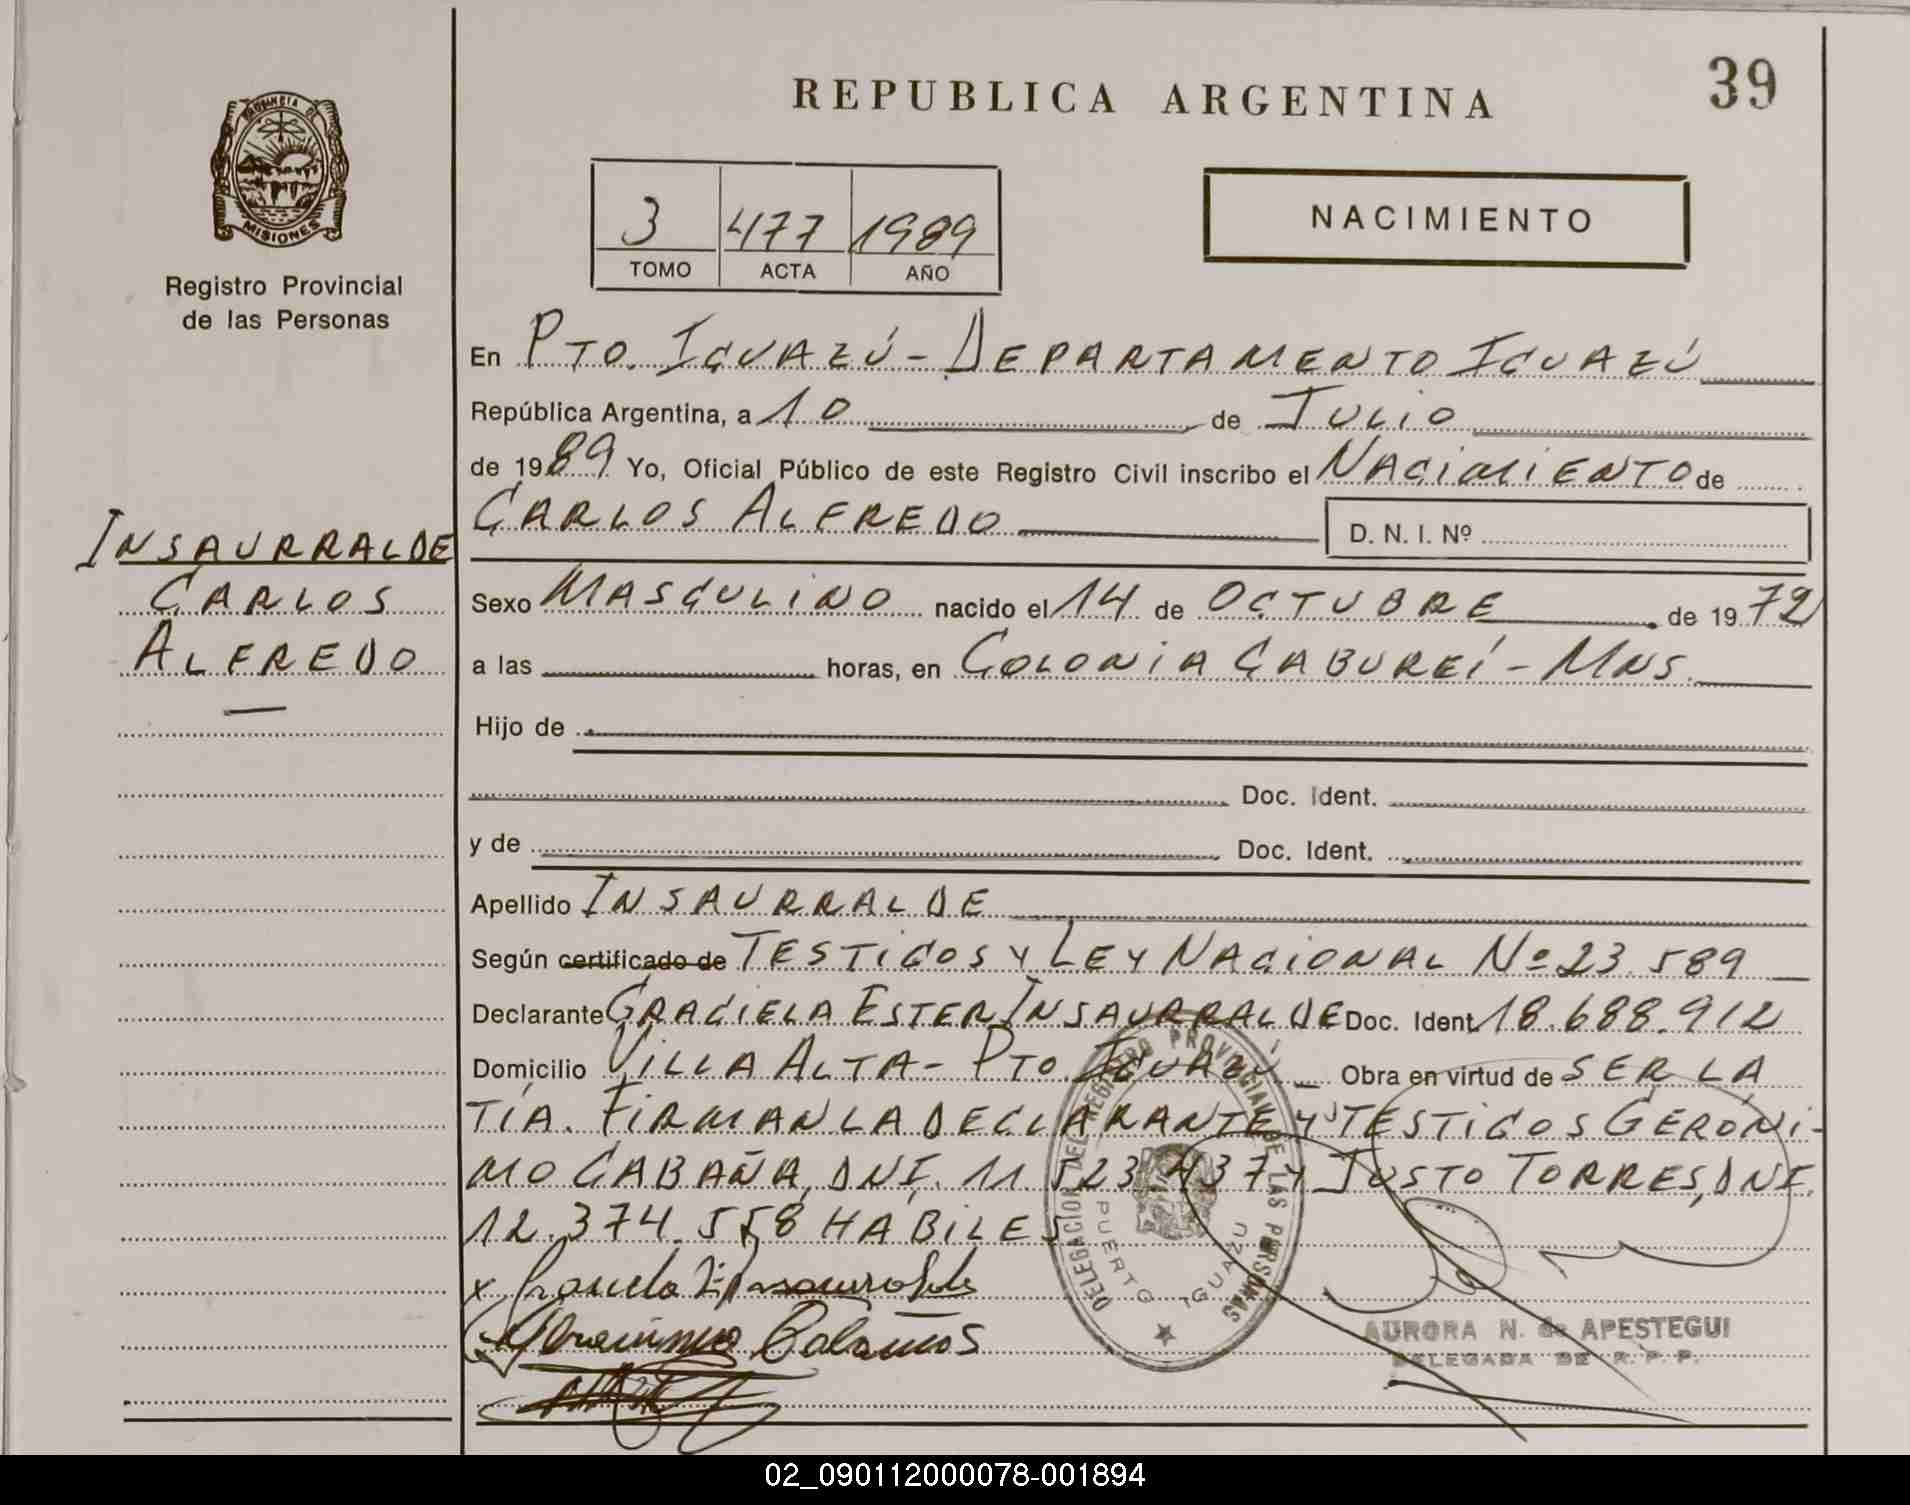 REPUBLICA ARGENTINA
39
PROVINCIA DE
MISIONES
Registro Provincial
de las Personas
3 477 1989
TOMO ACTA AÑO
NACIMIENTO
En PTO. IGUAZÚ - DEPARTAMENTO IGUAZÚ
República Argentina, a 10 de JULIO
de 1989 Yo, Oficial Público de este Registro Civil inscribo el NACIMIENTO de
CARLOS ALFREDO D. N. I. Nº
INSAURRALDE
CARLOS
ALFREDO
Sexo MASCULINO nacido el 14 de OCTUBRE de 1972
a las horas, en COLONIA CABUREÍ - MNS.
Hijo de
Doc. Ident.
y de Doc. Ident.
Apellido INSAURRALDE
Según certificado de TESTIGOS Y LEY NACIONAL Nº 23.589
Declarante GRACIELA ESTER INSAURRALDE Doc. Ident. 18.688.912
Domicilio VILLA ALTA - PTO. IGUAZÚ Obra en virtud de SER LA
TÍA. FIRMAN LA DECLARANTE Y TESTIGOS GERÓNI-
MO CABAÑA, DNI. 11.523.437 Y JUSTO TORRES, DNI.
12.374.558 HABILES
DELEGACION DEL REGISTRO PROVINCIAL DE LAS PERSONAS
PUERTO IGUAZU
AURORA N. de APESTEGUI
DELEGADA DE R. P. P.
02_090112000078-001894